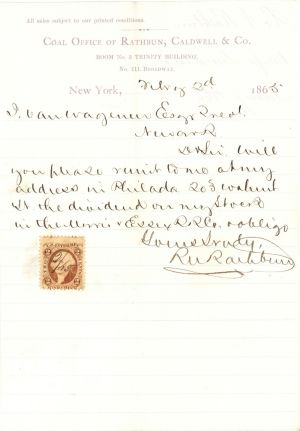 All sales subject to our printed conditions.
Coal Office of Rathbun, Caldwell & Co.
Room No. 2 Trinity Building,
No. 111 Broadway.
New York, Feby 2d 1865
J. Van Wagenen Esqr Treas.
Newark
D Sir Will
you please remit to me at my
address in Philada 203 Walnut
St the dividend on my Stock
in the Morris & Essex RR Co. & oblige
Yours truly,
R W Rathbun